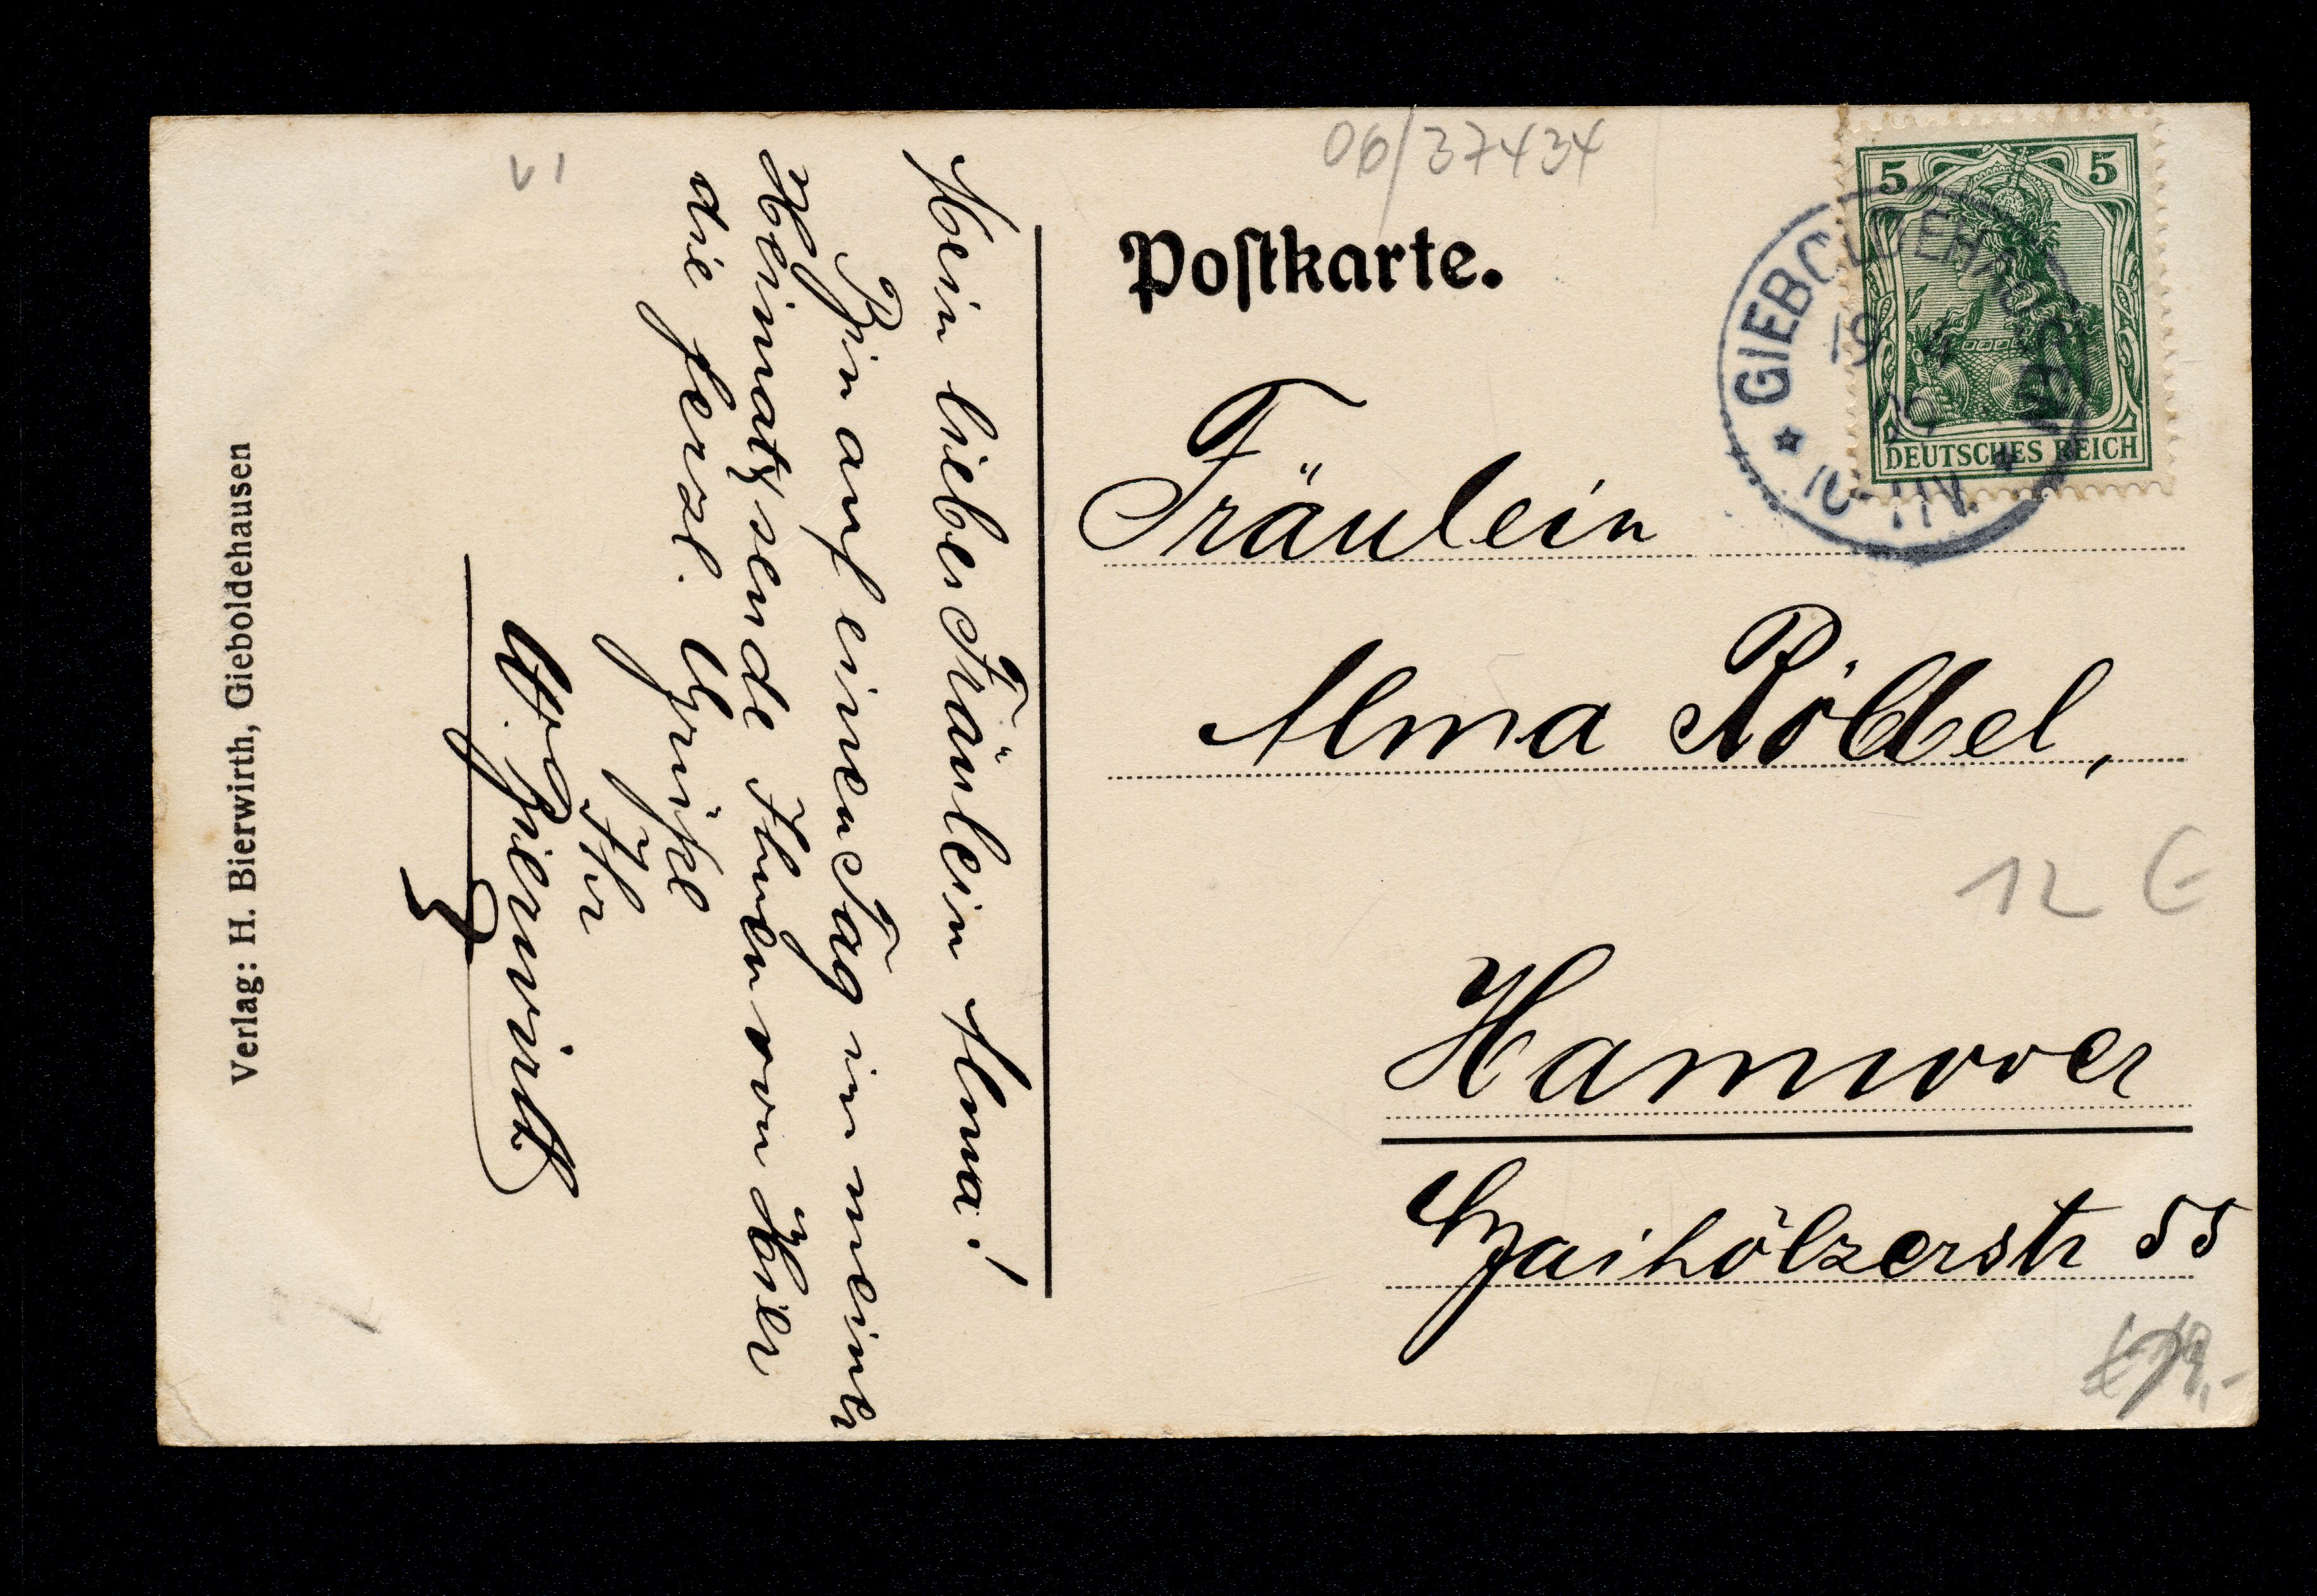 06/37434
Postkarte.
5 5
DEUTSCHES REICH
GIEBOLDEHAUSEN
19 4
Fräulein
Alma Röbbel,
Hannover
Haihölzerstr 55
12 €
Mein liebes Fräulein Alma!
Bin auf einen Tag in meiner
Heimat, sende Ihnen von hier
die herzl. Grüße
Ihr
Bierwirth
Verlag: H. Bierwirth, Gieboldehausen